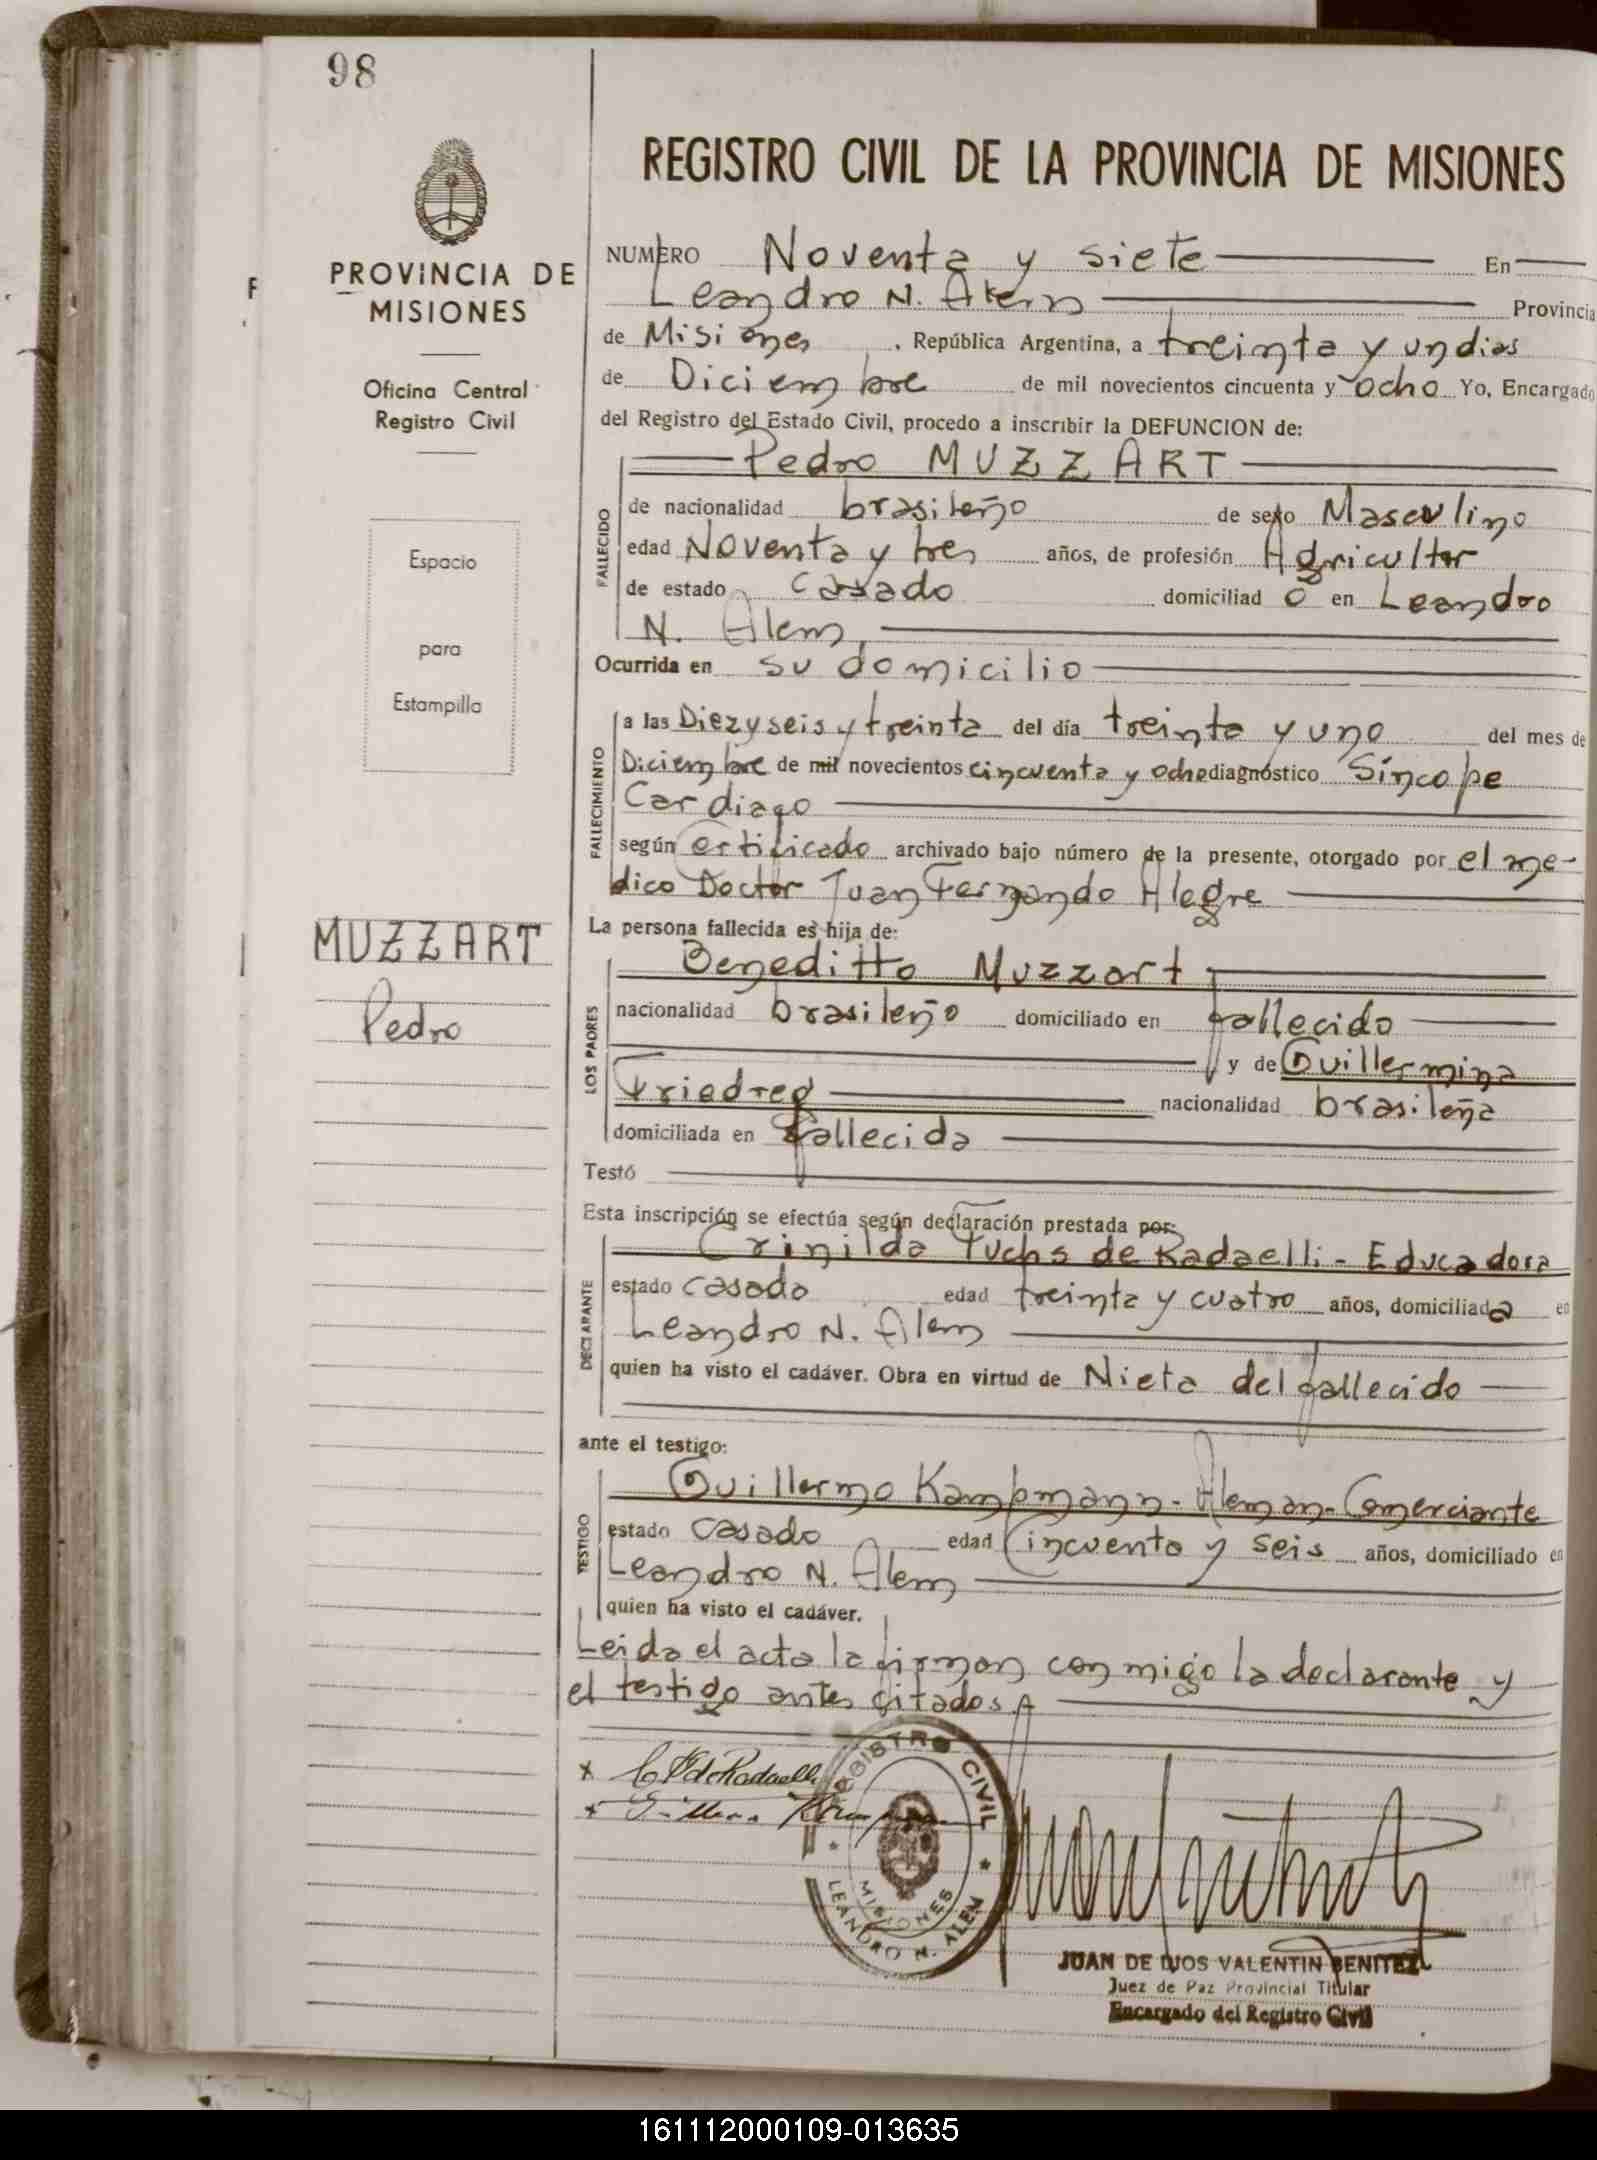 98
REGISTRO CIVIL DE LA PROVINCIA DE MISIONES
PROVINCIA DE
MISIONES
Oficina Central
Registro Civil
Espacio
para
Estampilla
MUZZART
Pedro
NUMERO Noventa y siete En
Leandro N. Alem Provincia
de Misiones , República Argentina, a treinta y un dias
de Diciembre de mil novecientos cincuenta y ocho Yo, Encargado
del Registro del Estado Civil, procedo a inscribir la DEFUNCION de:
Pedro MUZZART
FALLECIDO
de nacionalidad brasileño de sexo Masculino
edad Noventa y tres años, de profesión Agricultor
de estado casado domiciliad o en Leandro
N. Alem,
Ocurrida en su domicilio
FALLECIMIENTO
a las Diez y seis y treinta del día treinta y uno del mes de
Diciembre de mil novecientos cincuenta y ocho diagnóstico Síncope
Cardiaco
según Certificado archivado bajo número de la presente, otorgado por el me-
dico Doctor Juan Fernando Alegre
La persona fallecida es hija de:
LOS PADRES
Beneditto Muzzart
nacionalidad brasileño domiciliado en fallecido
y de Guillermina
Friedreg nacionalidad brasileña
domiciliada en fallecida
Testó
Esta inscripción se efectúa según declaración prestada por:
DECLARANTE
Crinilda Fuchs de Radaelli - Educadora
estado casada edad treinta y cuatro años, domiciliada en
Leandro N. Alem
quien ha visto el cadáver. Obra en virtud de Nieta del fallecido
ante el testigo:
TESTIGO
Guillermo Kampmann - Aleman - Comerciante
estado casado edad Cincuenta y seis años, domiciliado en
Leandro N. Alem
quien ha visto el cadáver.
Leida el acta la firman con migo la declarante y
el testigo antes citados
REGISTRO CIVIL
MISIONES
LEANDRO N. ALEM
JUAN DE DIOS VALENTIN BENITEZ
Juez de Paz Provincial Titular
Encargado del Registro Civil
161112000109-013635